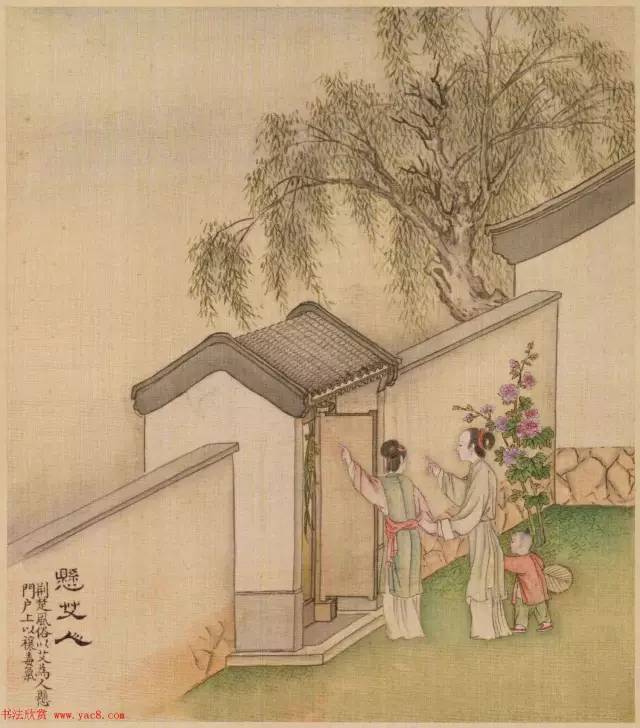 懸艾人
荆楚風俗以艾為人懸
門户上以禳毒氣
书法欣赏 www.yac8.com